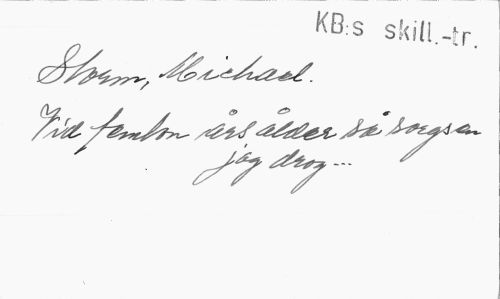 KB:s skill.-tr.
Storm, Michael.
Vid femton års ålder så sorgsen
jag drog...